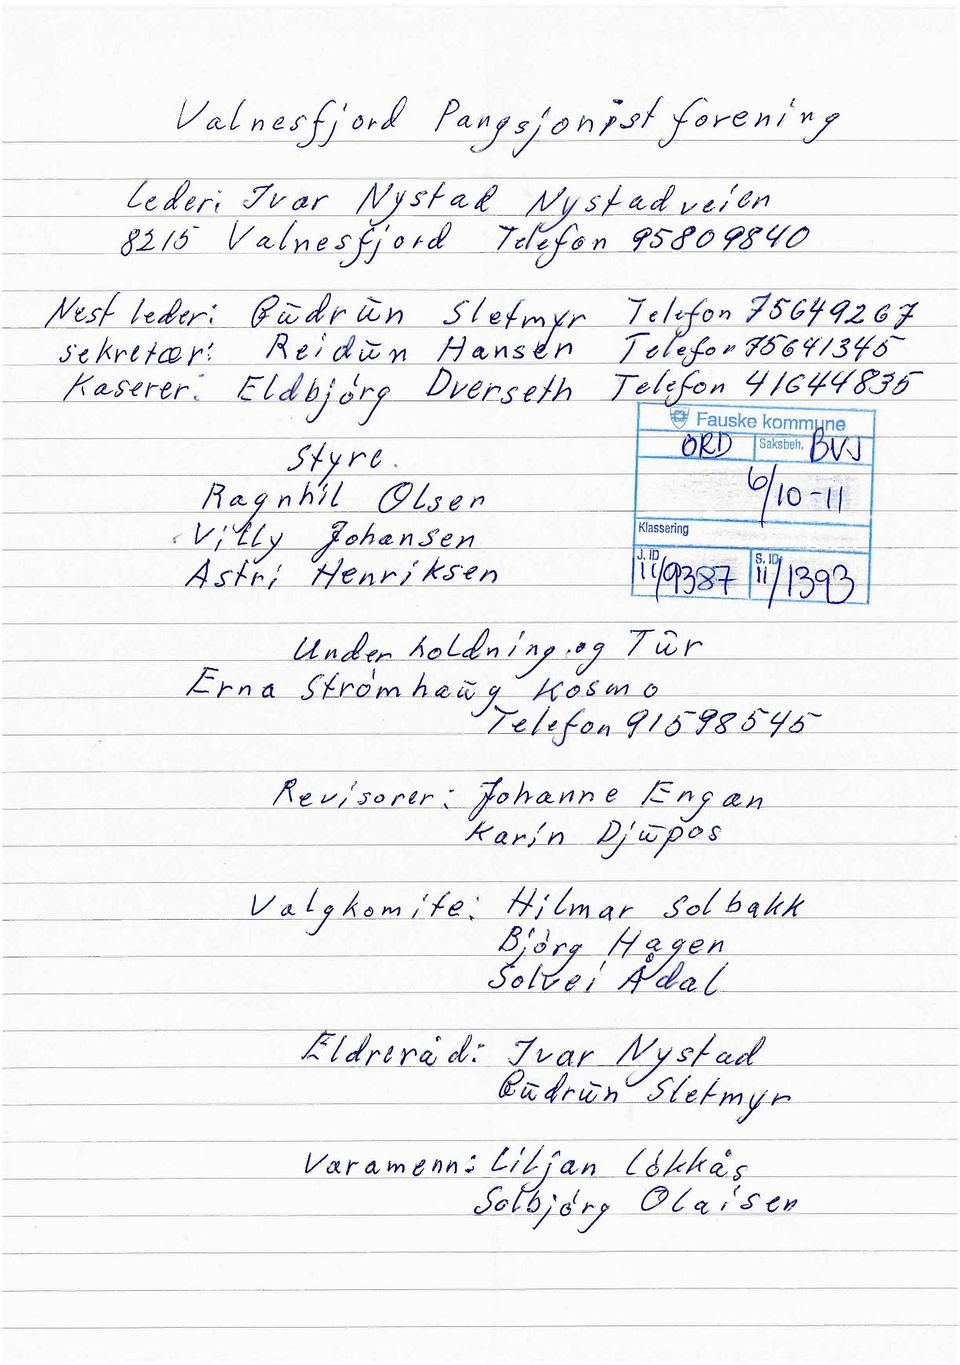 Valnesfjord Pangsjonist forening
Leder: Ivar Nystad Nystadveien
8215 Valnesfjord Telefon 95809840
Nest leder: Gudrun Sletmyr Telefon 75649267
sekretær: Reidun Hansen Telefon 75641345
Kaserer: Eldbjórg Dverseth Telefon 41644835
Fauske kommune
ORD Saksbeh. BVJ
6/10-11
Klassering
J. ID S. ID
11/9387 11/1393
Styre.
Ragnhil Olsen
Villy Johansen
Astri Henriksen
Underholdning og Tur
Erna Strómhaug Kosmo
Telefon 91598545
Revisorer: Johanne Engan
Karin Djupos
Valgkomite: Hilmar Solbakk
Bjórg Hagen
Solvei Ådal
Eldreråd: Ivar Nystad
Gudrun Sletmyr
Varamenn: Liljan Lókkås
Solbjórg Olaisen